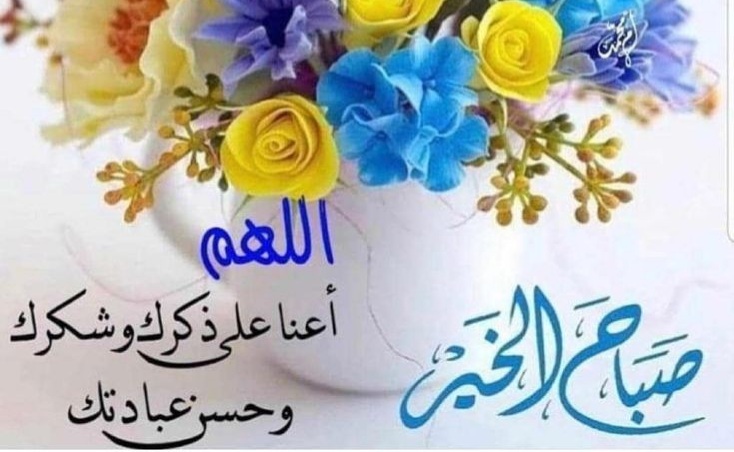 أم محمد
اللهم
أعنا على ذكرك وشكرك
وحسن عبادتك
صَبَاحُ الخَيْر